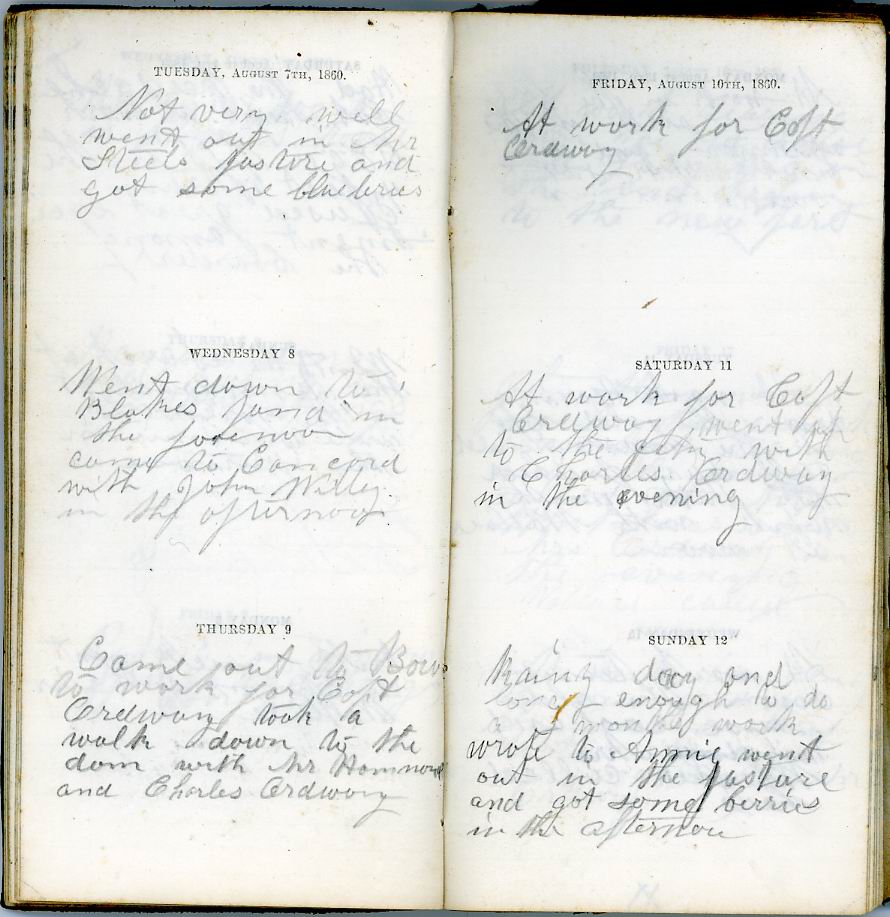 TUESDAY, AUGUST 7TH, 1860.
Not very well
went out in Mr
Steels pasture and
got some blueberies
WEDNESDAY 8
Went down to
Blakes in
the forenoon
came to Concord
with John Willey
in the afternoon
THURSDAY 9
Came out to Bow
to work for Capt
Ordway took a
walk down to the
dam with Mr Hammond
and Charles Ordway
FRIDAY, AUGUST 10TH, 1860.
At work for Capt
Ordway
SATURDAY 11
At work for Capt
Ordway went up
to the city with
Charles Ordway
in the evening
SUNDAY 12
Rainy day and
long enough to do
a months work
wrote to Annie went
out in the pasture
and got some berries
in the afternoon